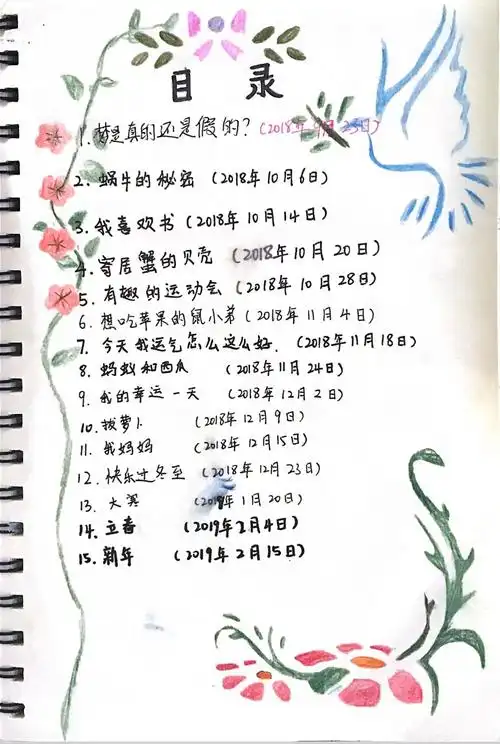 目 录
1. 梦是真的还是假的？(2018年9月23日)
2. 蜗牛的秘密 (2018年10月6日)
3. 我喜欢书 (2018年10月14日)
4. 寄居蟹的贝壳 (2018年10月20日)
5. 有趣的运动会 (2018年10月28日)
6. 想吃苹果的鼠小弟 (2018年11月4日)
7. 今天我运气怎么这么好. (2018年11月18日)
8. 蚂蚁和西瓜 (2018年11月24日)
9. 我的幸运一天 (2018年12月2日)
10. 拔萝卜 (2018年12月9日)
11. 我妈妈 (2018年12月15日)
12. 快乐过冬至 (2018年12月23日)
13. 大寒 (2019年1月20日)
14. 立春 (2019年2月4日)
15. 新年 (2019年2月15日)